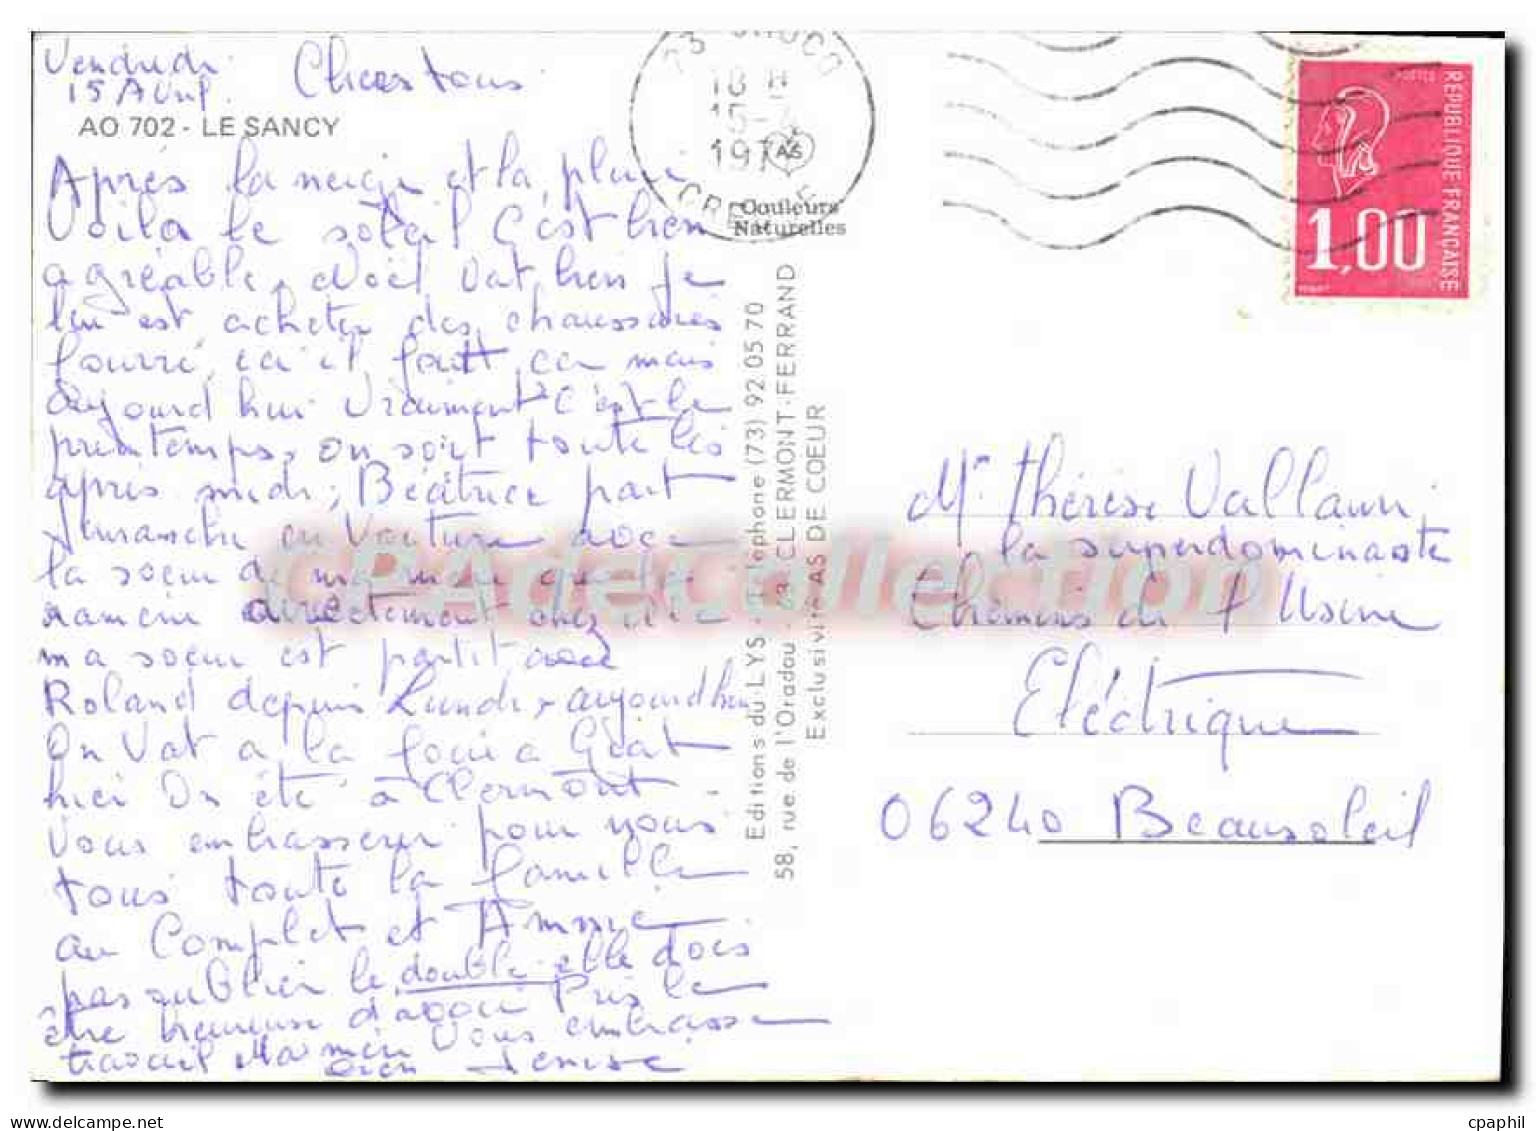 Vendredi
15 Avril.
Chers tous
AO 702 - LE SANCY
Après la neige et la pluie
Voila le soleil C'est bien
agréable, Noël vat bien je
lui est acheter des chaussures
fourré, ici il faut ca mais
aujourd hui vraiment c'est le
printemps, on sort toute les
après midi; Béatrice part
dimanche en voiture avec
la soeur de ma mère qui la
ramène directement chez elle
ma soeur est partit avec
Roland depuis Lundi, aujourd hui
On vat a la foire a Giat
hier On été à Clermont -
Vous embrasser pour nous
tous toute la famille
au Complet et Ammie
pas oublier le double elle dois
être heureuse d'avoir Pris le
travail Maimen Vous embrasse
bien Denise
18 H
15-4
197
AS
Couleurs
Naturelles
Editions du LYS - Téléphone (73) 92 05 70
58, rue de l'Oradou - 63 CLERMONT-FERRAND
Exclusivité AS DE COEUR
CPAdeCollection
POSTES
REPUBLIQUE FRANÇAISE
1,00
Me Thérèse Vallauri
la superdominante
Chemins de l'Usine
Eléctrique
06240 Beausoleil
cpaphil